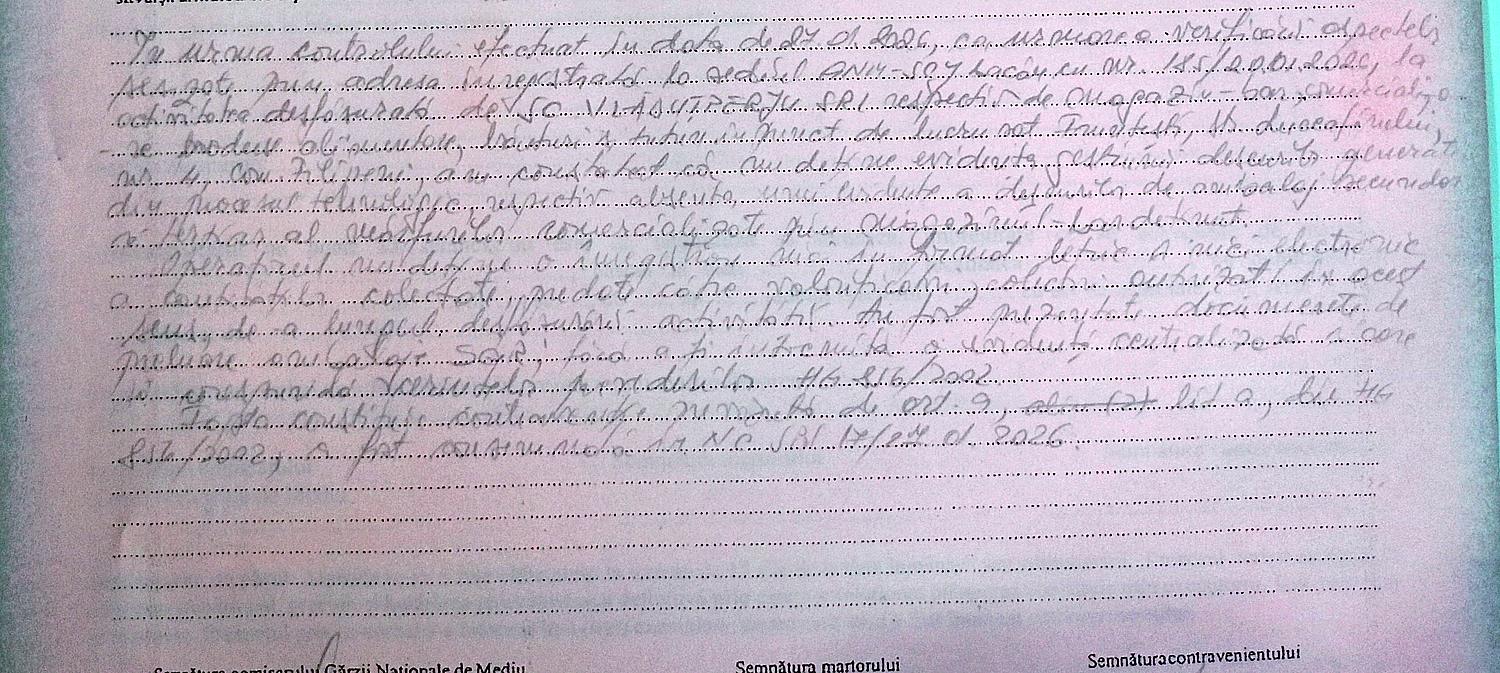 În urma controlului efectuat în data de 27.01.2026, ca urmare a verificării aspectelor
sesizate prin adresa înregistrată la sediul GNM-SCJ Bacău cu nr. 185/20.01.2026, la
activitatea desfășurată de SC SRL respectiv de magazin-bar, comercializa-
re produse alimentare, băuturi și tutun în punct de lucru sat str.
nr. 4, com. Filipeni, am constatat că nu deține evidența gestiunii deșeurilor generate
din procesul tehnologic, respectiv absența unei evidențe a deșeurilor de ambalaj secundar
terțiar al mărfurilor comercializate prin magazinul-bar deținut.
Operatorul nu deține o înregistrare nici în format letric și nici electronic
a cantităților colectate, predate către valorificatori, colectori autorizați în acest
sens, de-a lungul desfășurării activității. Au fost prezentate documente de
preluare ambalaje SGR, fără a fi întocmită o evidență centralizată și care
cerințelor prevederilor HG 856/2002.
Fapta constituie contravenție de art. 9, alin (2) lit a, din HG
856/2002, a fost consemnată în NC 17/27.01.2026.
Semnătura comisarului Gărzii Naționale de Mediu
Semnătura martorului
Semnătura contravenientului